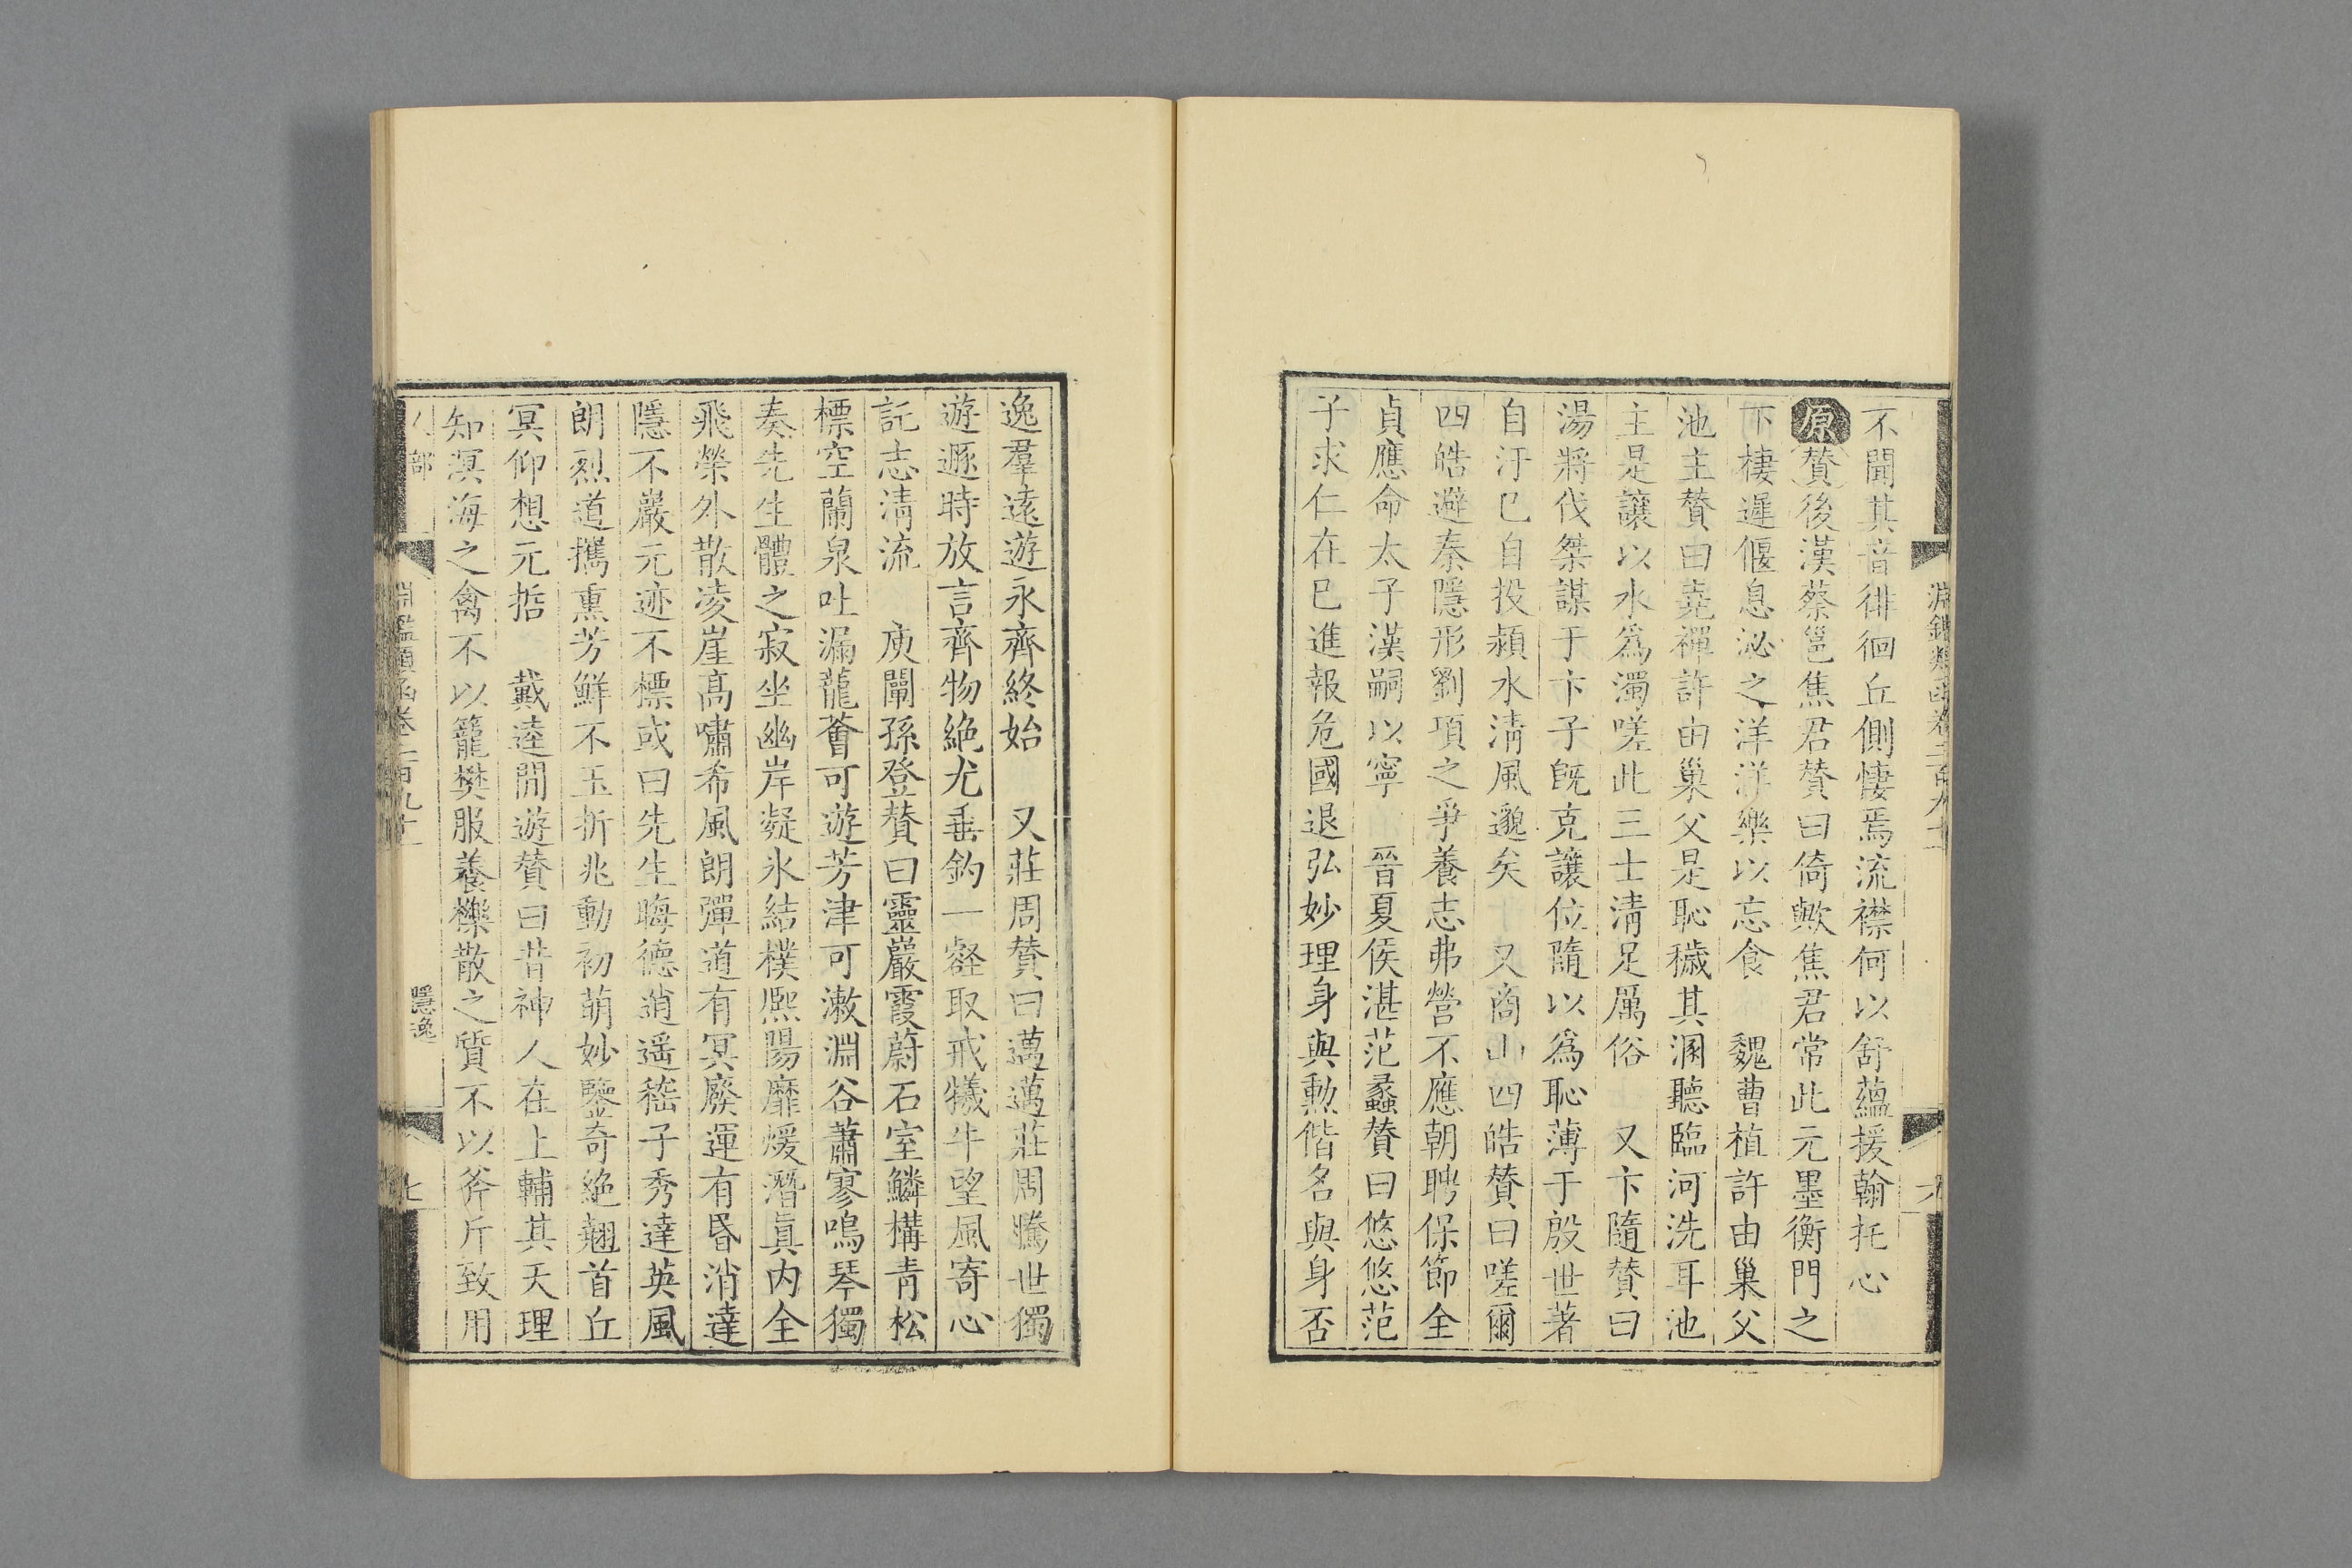 不聞其音徘徊丘側悽焉流襟何以舒蘊援翰托心
原贊後漢蔡邕焦君贊曰倚歟焦君常此元墨衡門之
下棲遲偃息泌之洋洋樂以忘食 魏曹植許由巢父
池主贊曰堯禪許由巢父是恥穢其溷聽臨河洗耳池
主是讓以水爲濁嗟此三士淸足厲俗 又卞隨贊曰
湯將伐桀謀于卞子旣克讓位隨以爲恥薄于殷世著
自汙己自投潁水淸風邈矣 又商山四皓贊曰嗟爾
四皓避秦隱形劉項之爭養志弗營不應朝聘保節全
貞應命太子漢嗣以寧 晉夏侯湛范蠡贊曰悠悠范
子求仁在己進報危國退弘妙理身與勲偕名與身否
逸羣遠遊永齊終始 又莊周贊曰邁邁莊周騰世獨
遊遯時放言齊物絶尤垂釣一壑取戒犧牛望風寄心
託志淸流 庾闡孫登贊曰靈巖霞蔚石室鱗構青松
標空蘭泉吐漏蘢薈可遊芳津可漱淵谷蕭寥鳴琴獨
奏先生體之寂坐幽岸凝氷結樸熈陽靡煖潛眞內全
飛榮外散凌崖高嘯希風朗彈道有冥廢運有昏消達
隱不巖元迹不標或曰先生晦德逍遥嵇子秀達英風
朗烈道攜熏芳鮮不玉折兆動初萌妙鑒奇絶翹首丘
冥仰想元哲 戴逵閒遊贊曰昔神人在上輔其天理
知溟海之禽不以籠樊服養櫟散之質不以斧斤致用
人部
淵鑑類函卷二百九十一
隱逸
七